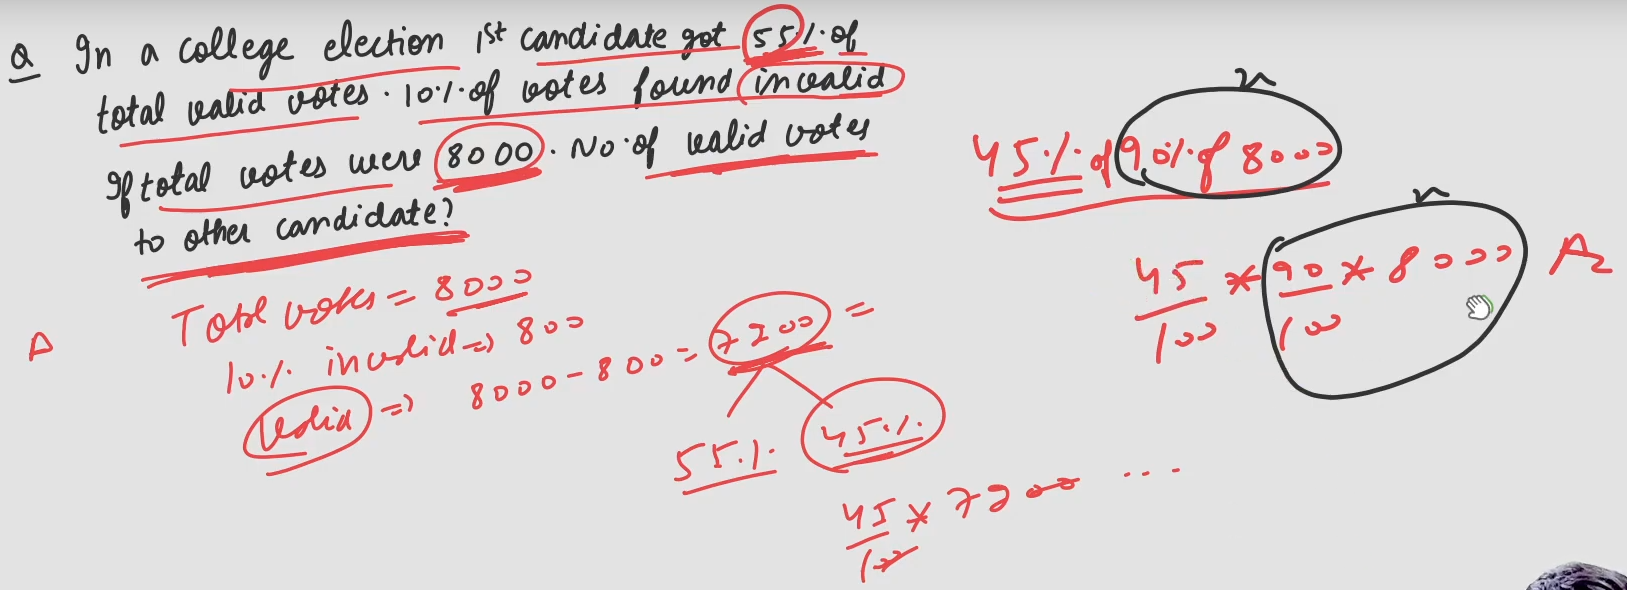 Q In a college election 1st candidate got 55% of
total valid votes. 10% of votes found invalid
If total votes were 8000. No. of valid votes
to other candidate?
Total votes = 8000
10% invalid => 800
Valid => 8000 - 800 = 7200 =
55% 45%
45/100 * 7200 ...
45% of 90% of 8000
45/100 * 90/100 * 8000 A2
A